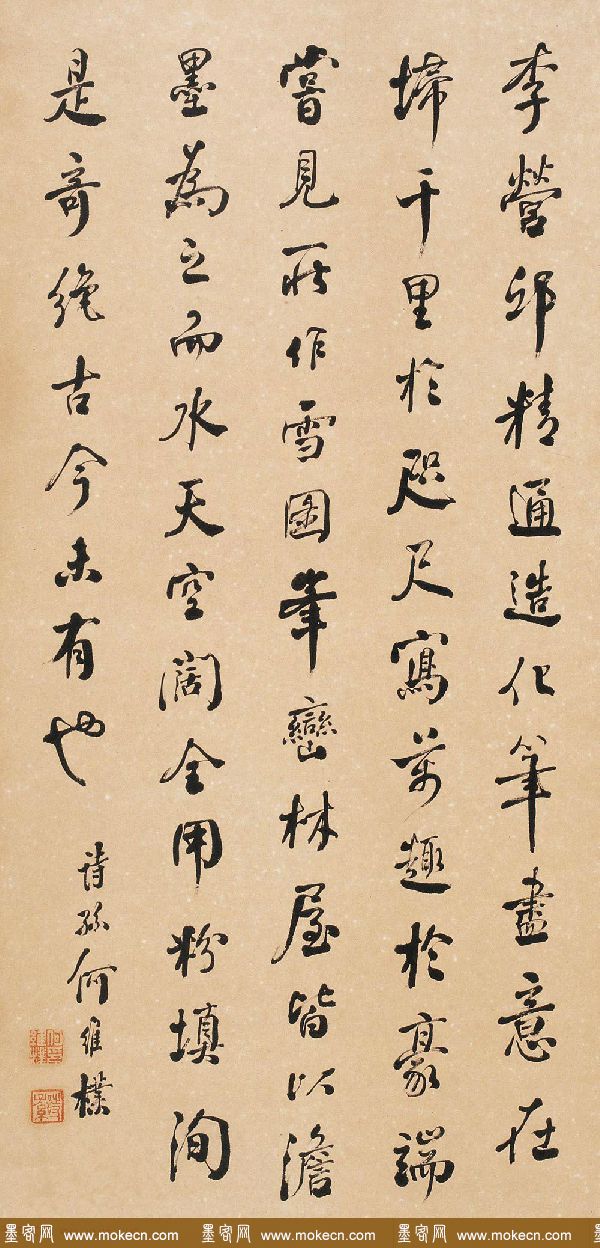 李營邱精通造化筆盡意在
埽千里於咫尺寫萬趣於豪端
嘗見所作雪圖峯巒林屋皆以澹
墨為之而水天空闊全用粉填洵
是奇絶古今未有也
詩孫何維樸
墨客网 www.mokecn.com 墨客网 www.mokecn.com 墨客网 www.mokecn.com